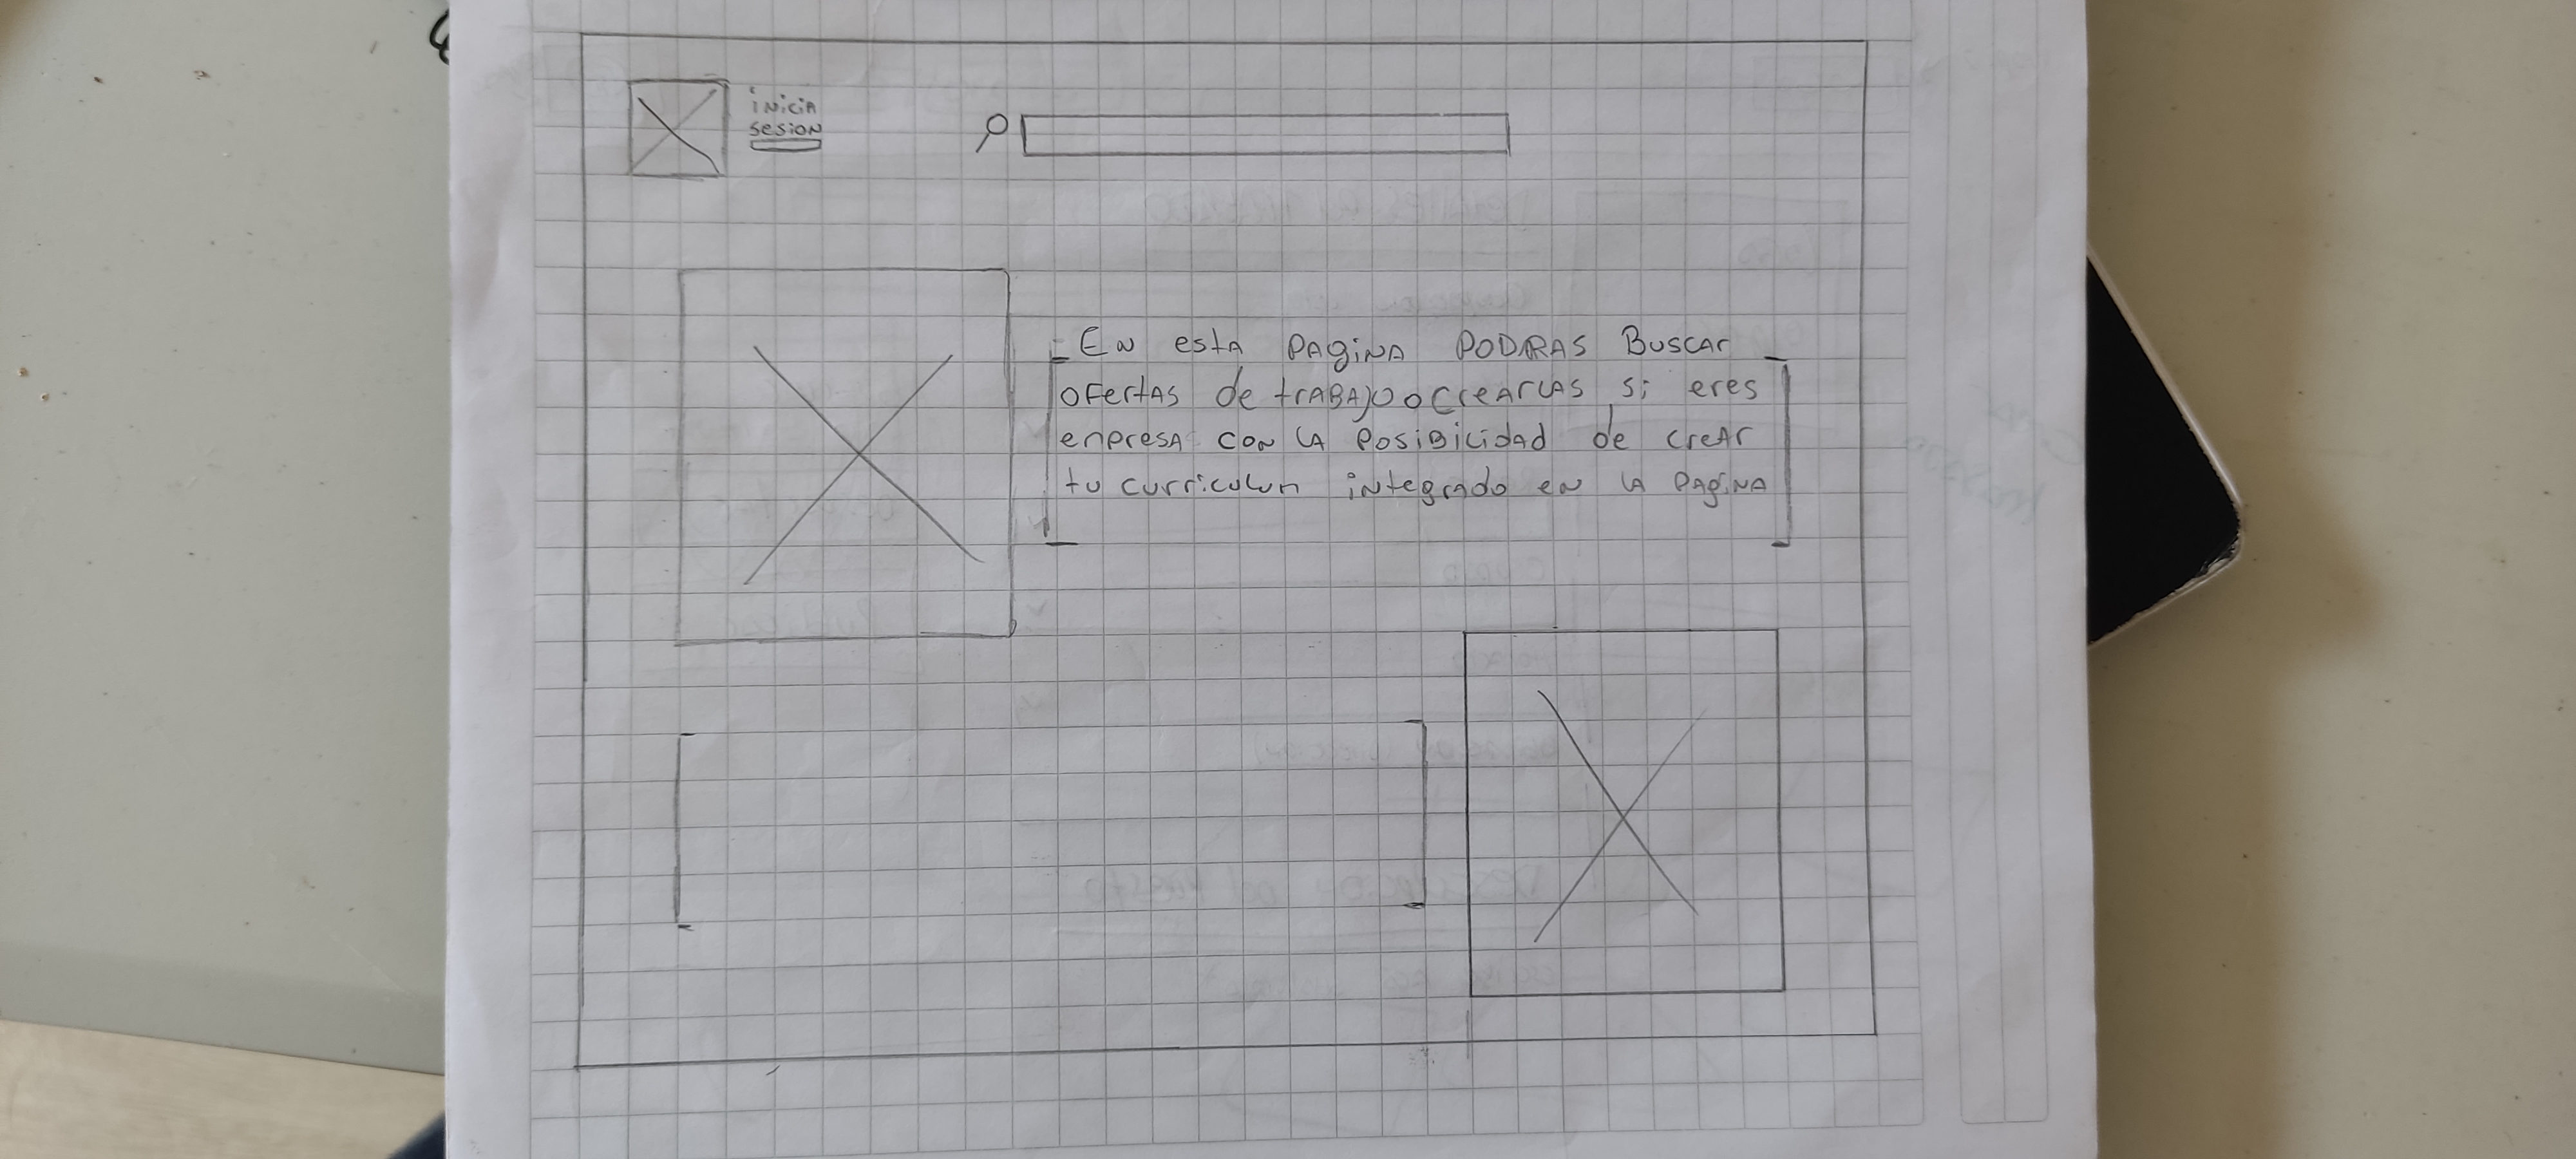 inicia
sesion
En esta pagina podras Buscar
ofertas de trabajo o crearlas si eres
enpresa con la posibilidad de crear
tu curriculun integrado en la pagina